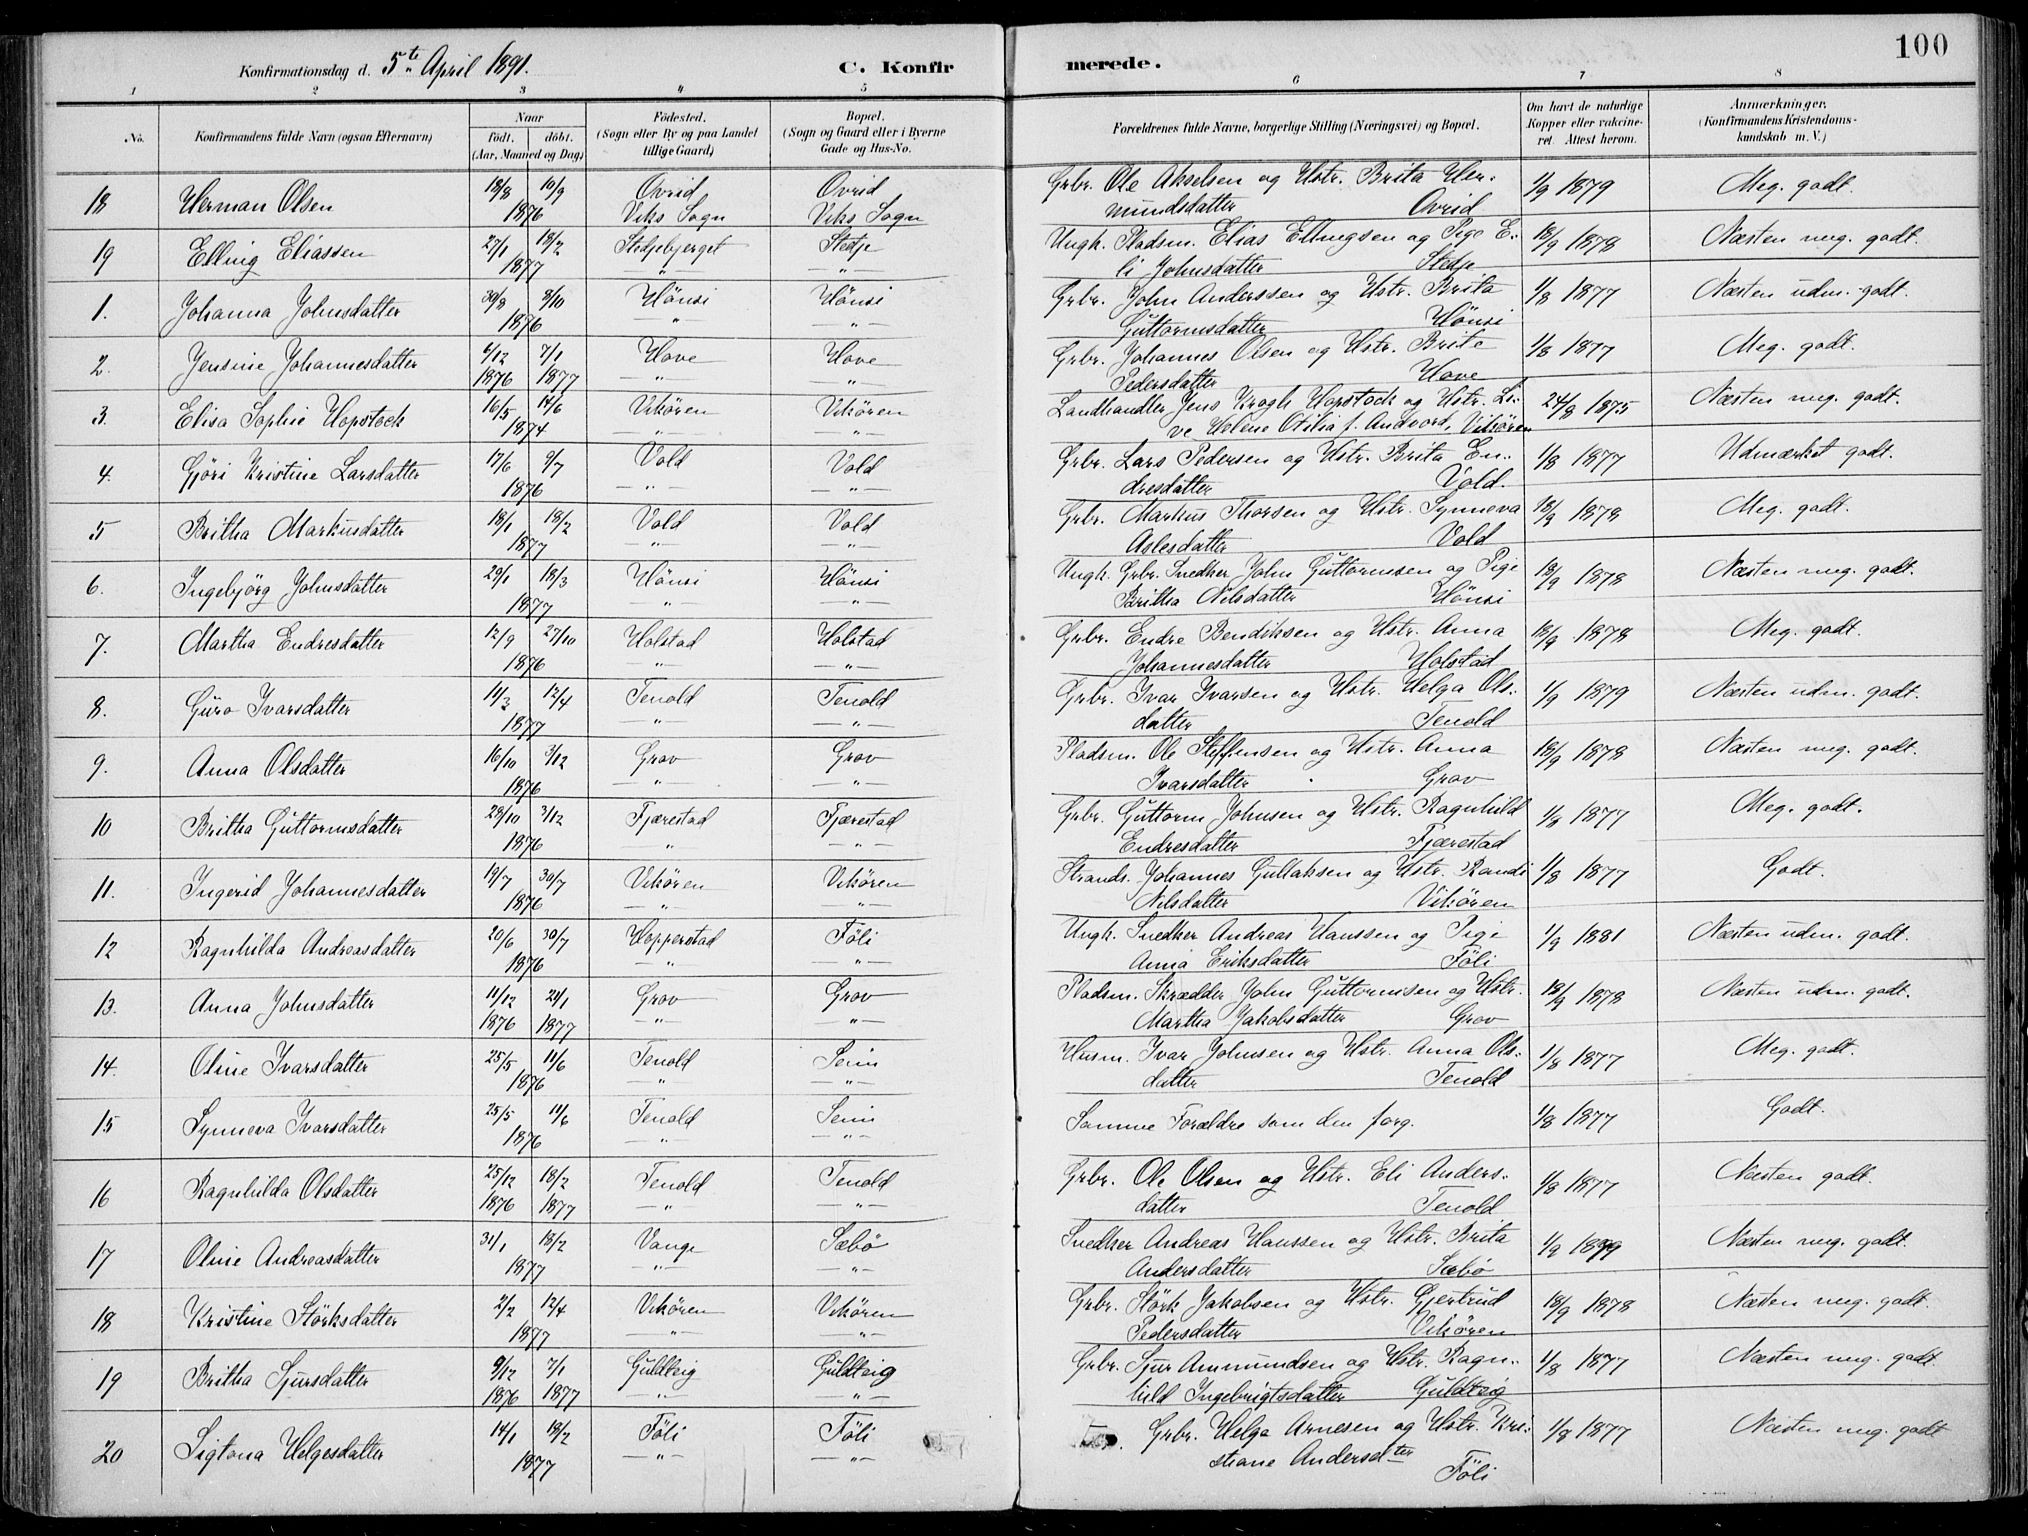 100
Konfirmationsdag d. 5te April 1891.
C. Konfirmerede.
1 2 3 4 5 6 7 8
No. Konfirmandens fulde Navn (ogsaa Efternavn) Naar födt. döbt. (Aar, Maaned og Dag) Födested. (Sogn eller By og paa Landet tillige Gaard) Bopæl. (Sogn og Gaard eller i Byerne Gade og Hus-No. Forældrenes fulde Navne, borgerlige Stilling (Næringsvei) og Bopæl. Om havt de naturlige Kopper eller vakcineret. Attest herom. Anmærkninger, (Konfirmandens Kristendomskundskab m. V.)
18 Herman Olsen 18/8 10/9 1876 Ovrid Viks Sogn Ovrid Viks Sogn Grbr. Ole Akselsen og Hstr. Brita Hermundsdatter Ovrid 1/9 1879 Meg. godt.
19 Elling Eliassen 27/1 18/2 1877 Stedjebjerget Stedje Ungk. Pladsm. Elias Ellingsen og Pige Eli Johnsdatter Stedje 18/9 1878 Næsten meg. godt.
1. Johanna Johnsdatter 30/8 8/10 1876 Hönsi Hönsi Grbr. John Anderssen og Hstr. Brita Guttormsdatter Hönsi 1/8 1877 Næsten udm. godt.
2. Jensine Johannesdatter 4/12 1876 7/1 1877 Hove Hove Grbr. Johannes Olsen og Hstr. Brite Pedersdatter Hove 1/8 1877 Meg. godt.
3. Elisa Sophie Hopstock 16/5 14/6 1874 Vikören Vikören Landhandler Jens Krogh Hopstock og Hstr. Live Helene Otilia f. Andvord, Vikören 24/8 1875 Næsten meg. godt.
4. Gjöri Kristine Larsdatter 17/6 9/7 1876 Vold Vold Grbr. Lars Pedersen og Hstr. Brita Endresdatter Vold. 1/8 1877 Udmærket godt.
5 Britha Markusdatter 18/1 18/2 1877 Vold Vold Grbr. Markus Thorsen og Hstr. Synneva Aslesdatter Vold 18/9 1878 Meg. godt.
6. Ingebjörg Johnsdatter 29/1 18/3 1877 Hönsi Hönsi Ungk. Grbr. Snedker John Guttormsen og Pige Britha Nilsdatter Hönsi 18/9 1878 Næsten meg. godt.
7. Martha Endresdatter 12/9 27/10 1876 Holstad Holstad Grbr. Endre Bendiksen og Hstr. Anna Johannesdatter Holstad 18/9 1878 Meg. godt.
8. Guro Ivarsdatter 11/3 12/4 1877 Tenold Tenold Grbr. Ivar Ivarsen og Hstr. Helga Olsdatter Tenold 1/9 1879 Næsten udm. godt.
9. Anna Olsdatter 16/10 3/12 1876 Grov Grov Pladsm. Ole Steffensen og Hstr. Anna Ivarsdatter Grov 18/9 1878 Næsten meg. godt.
10 Britha Guttormsdatter 28/10 3/12 1876 Fjærestad Fjærestad Grbr. Guttorm Johnsen og Hstr. Ragnhild Endresdatter Fjærestad 1/8 1877 Meg. godt.
11. Ingerid Johannesdatter 19/7 30/7 1876 Vikören Vikören Strands. Johannes Gullaksen og Hstr. Randi Nilsdatter Vikören 1/8 1877 Godt.
12 Ragnhilda Andreasdatter 20/6 30/7 1876 Hopperstad Föli Ungk. Snedker Andreas Hanssen og Pige Anna Eriksdatter Föli 1/9 1881 Næsten udm. godt.
13. Anna Johnsdatter 11/12 1876 21/1 1877 Grov Grov Pladsm. Skrædder John Guttormsen og Hstr. Martha Jakobsdatter Grov 18/9 1878 Næsten udm. godt.
14. Oline Ivarsdatter 25/5 11/6 1876 Tenold Seim Husm. Ivar Johnsen og Hstr. Anna Olsdatter Tenold 1/8 1877 Meg. godt.
15 Synneva Ivarsdatter 25/5 11/6 1876 Tenold Seim Samme Forældre som den forg. 1/8 1877 Godt.
16 Ragnhilda Olsdatter 25/12 1876 18/2 1877 Tenold Tenold Grbr. Ole Olsen og Hstr. Eli Andersdatter Tenold 1/8 1877 Næsten godt.
17 Oline Andreasdatter 31/1 18/2 1877 Vange Sæbö Snedker Andreas Hanssen og Hstr. Brita Andersdatter Sæbö 1/9 Næsten meg. godt.
18 Kristine Störksdatter 2/2 12/4 1877 Vikören Vikören Grbr. Störk Jakobsen og Hstr. Gjertrud Pedersdatter Vikören 18/9 1878 Næsten meg. godt.
19 Britha Sjursdatter 9/12 1876 7/1 1877 Guldteig Guldteig Grbr. Sjur Ammundsen og Hstr. Ragnhild Ingebrigtsdatter Guldteig 1/8 1877 Næsten meg. godt
20 Sigtona Helgesdatter 14/1 18/2 1877 Föli Föli Grbr. Helge Arnesen og Hstr. Kristiane Andersdter Föli 1/8 1877 Næsten meg. godt